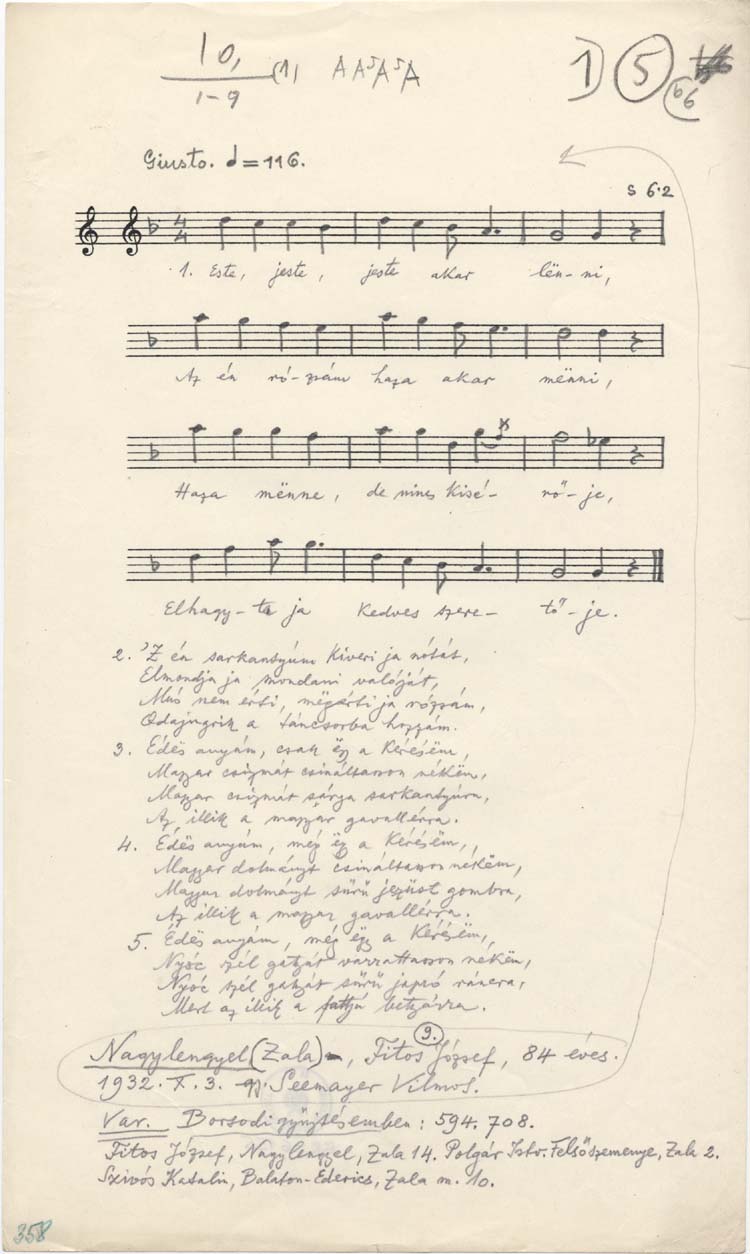 10,
1-9
(1) A A⁵A⁵A
1) 5
66
Giusto. 𝅗𝅥 = 116.
S 6·2
4
4
1. Este, jeste, jeste akar lën-ni,
Az én ró-zsám haza akar mënni,
Haza mënne, de nincs kisé- rő-je,
Elhagy-ta ja kedves szere- tő-je.
2. 'Z én sarkantyúm kiveri ja nótát,
Elmondja ja mondani valóját,
Más nem érti, mëgérti ja rózsám,
Odajugrik a táncsorba hozzám.
3. Édës anyám, csak ëgy a kérésëm,
Magyar csizmát csináltasson nékëm,
Magyar csizmát sárga sarkantyúra,
Az illik a magyar gavallérra.
4. Édës anyám, még ëgy a kérésëm,,
Magyar dolmányt csináltasson nekëm,
Magyar dolmányt sűrű jezüst gombra,
Az illik a magyar gavallérra.
5. Édës anyám, még ëgy a kérésëm,
Nyóc szél gatyát varrattasson nekëm,
Nyóc szél gatyát sűrű japró ráncra,
Mert az illik a fattyú betyárra.
Nagylengyel (Zala), Fitos József, 84 éves.
9.
1932. X. 3. gy. Seemayer Vilmos.
Var. Borsodi gyüjtésemben: 594. 708.
Fitos József, Nagylengyel, Zala 14. Polgár Istv. Felsőszemenye, Zala 2.
Szivós Katalin, Balaton-Ederics, Zala m. 10.
358